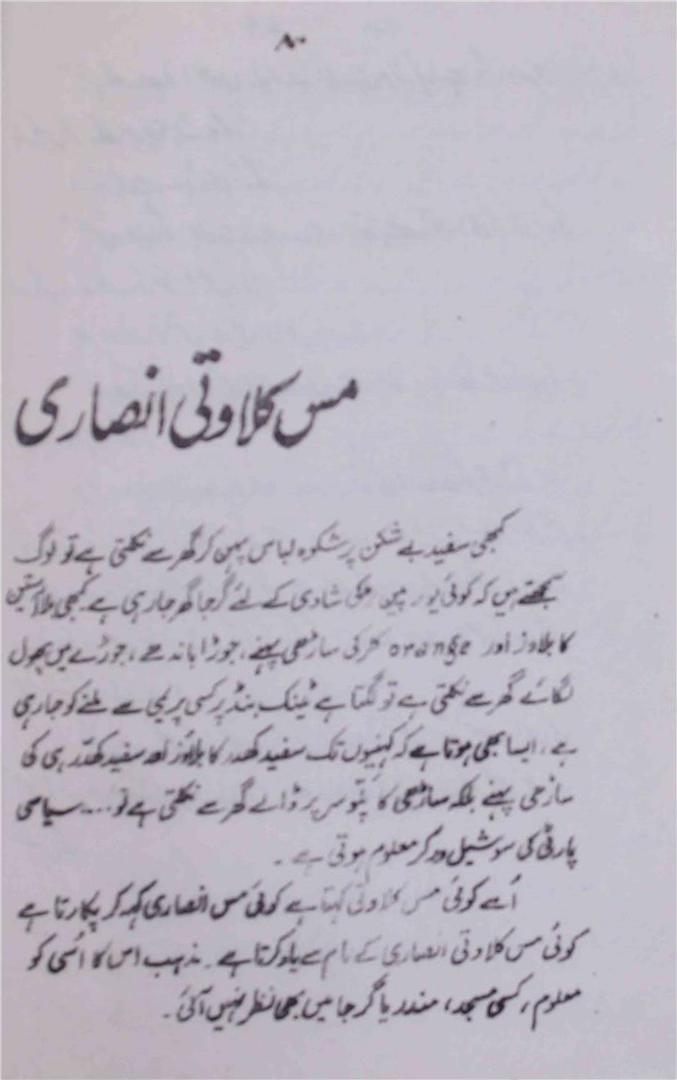 ۸۰
مس کلاوتی انصاری
کبھی سفید بے شکن پر شکوہ لباس پہن کر گھر سے نکلتی ہے تو لوگ
سمجھتے ہیں کہ کوئی یورپین لڑکی شادی کے لئے گرجا گھر جا رہی ہے کبھی بلا آستین
کا بلاوز اور orange کلر کی ساڑھی پہنے، جوڑا باندھے، جوڑے میں پھول
لگائے گھر سے نکلتی ہے تو لگتا ہے ٹینک بنڈ پر کسی پریمی سے ملنے کو جا رہی
ہے، ایسا بھی ہوتا ہے کہ کہنیوں تک سفید کھدر کا بلاؤز اور سفید کھدر ہی کی
ساڑھی پہنے بلکہ ساڑھی کا پلو سر پر ڈالے گھر سے نکلتی ہے تو .... سیاسی
پارٹی کی سوشیل ورکر معلوم ہوتی ہے ۔
اُسے کوئی مس کلاوتی کہتا ہے کوئی مس انصاری کہہ کر پکارتا ہے
کوئی مس کلاوتی انصاری کے نام سے یاد کرتا ہے ۔ مذہب اس کا اُسی کو
معلوم، کسی مسجد، مندر یا گرجا میں بھی نظر نہیں آئی ۔